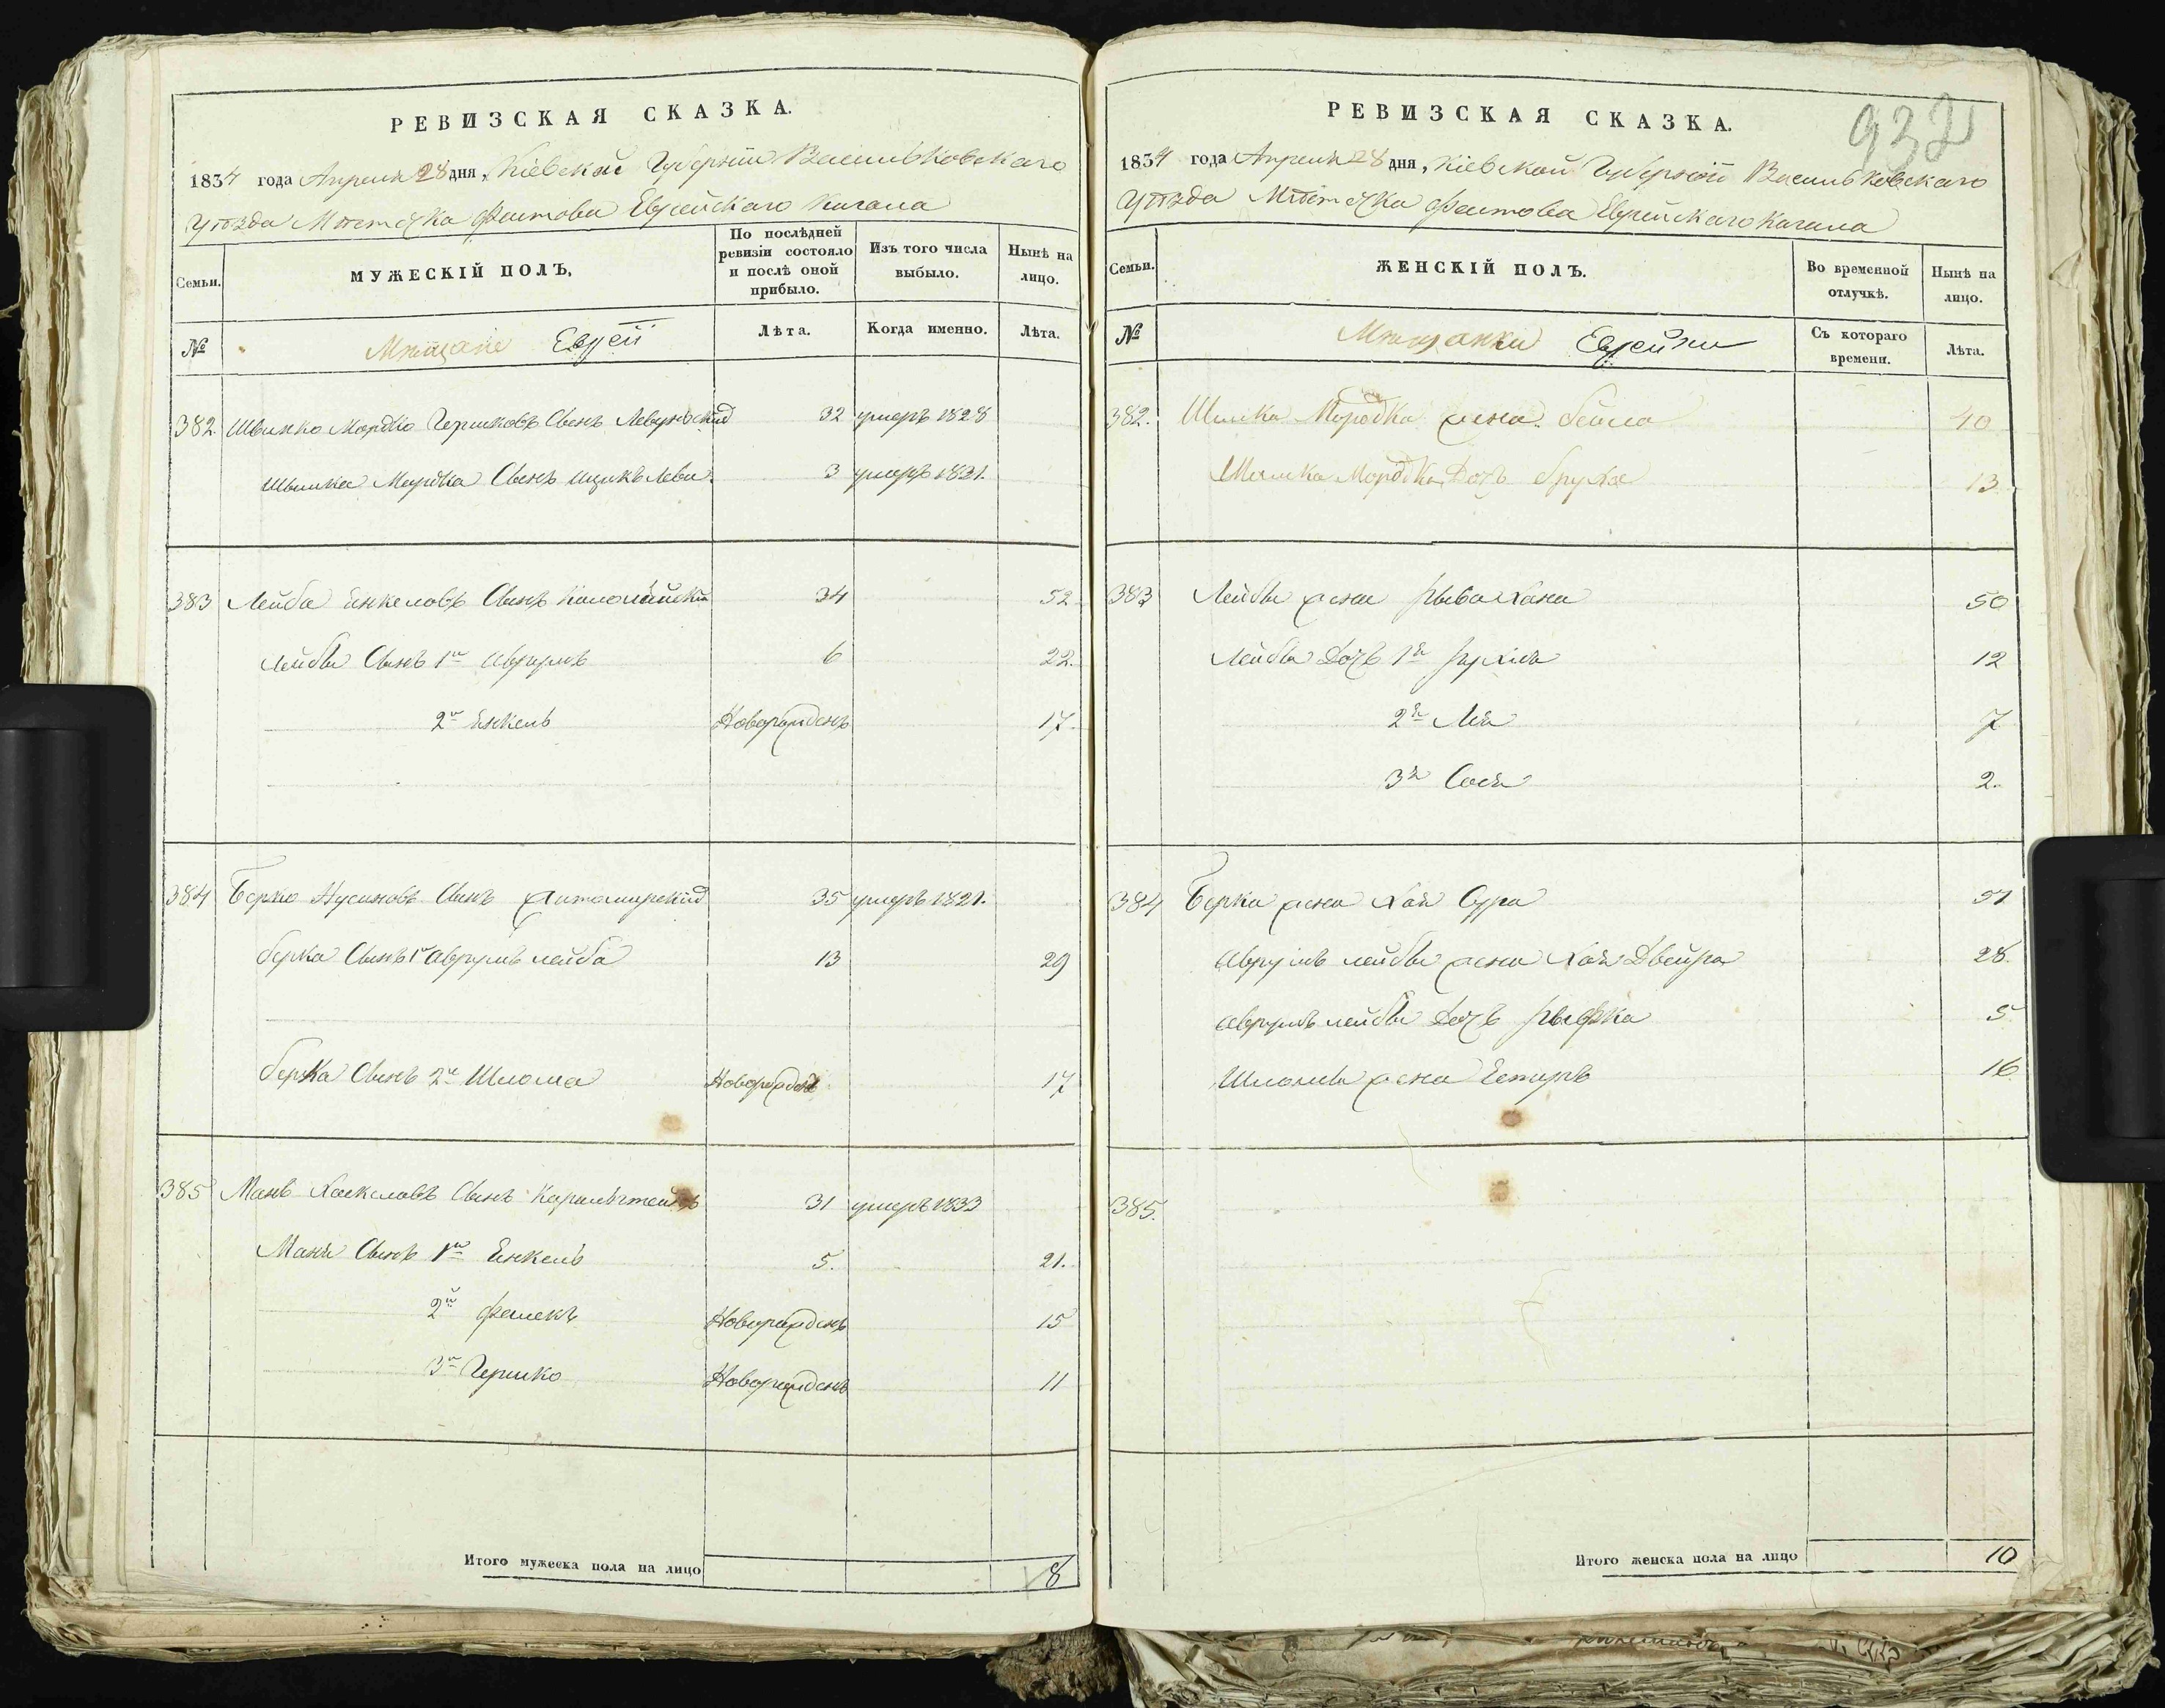 РЕВИЗСКАЯ СКАЗКА.
1834 года Апреля 28 дня, Кіевской Губерніи Васильковскаго
Уѣзда Мѣстечка Фастова Еврейскаго Кагала
Семьи.
МУЖЕСКІЙ ПОЛЪ.
По послѣдней ревизіи состояло и послѣ оной прибыло.
Изъ того числа выбыло.
Нынѣ на лицо.
№
Мѣщане Евреи
Лѣта.
Когда именно.
Лѣта.
382. Мордко Гершковъ Сынъ 32 умеръ 1828
Мордка Сынъ Ицикъ Леви. 3 умеръ 1821.
383 Лейба Енкеловъ Сынъ Коломійскій 34 52
Лейбы Сынъ 1й Аврумъ 6 22.
2й Енкель Новорожденъ 17
384 Берко Нусиновъ Сынъ Житомирскій 35 умеръ 1821.
Берка Сынъ 1й Аврумъ лейба 13 29
Берка Сынъ 2й Шлома Новорожденъ 17
385 Мань Хаскеловъ Сынъ 31 умеръ 1833
Маня Сынъ 1й Енкель 5. 21.
2й Новорожденъ 15
3й Гершко Новорожденъ 11
Итого мужеска пола на лицо 8
932
РЕВИЗСКАЯ СКАЗКА.
1834 года Апреля 28 дня, Кіевской Губерніи Васильковскаго
Уѣзда Мѣстечка Фастова Еврейскаго Кагала
Семьи.
ЖЕНСКІЙ ПОЛЪ.
Во временной отлучкѣ.
Нынѣ на лицо.
№
Мѣщанки Еврейки
Съ котораго времени.
Лѣта.
382. Мордка жена Бейла 40
Мордка Дочь Бруха 13
383 Лейбы жена Рыва Хана 50
Лейбы Дочь 1я Рухля 12
2я Лея 7
3я Сося 2.
384 Берка жена Хая Сура 51
Аврумъ лейбы жена Хая Двейра 28.
Аврумъ лейбы Дочь Рыфка 5
Шломы жена Естеръ 16
385.
Итого женска пола на лицо 10